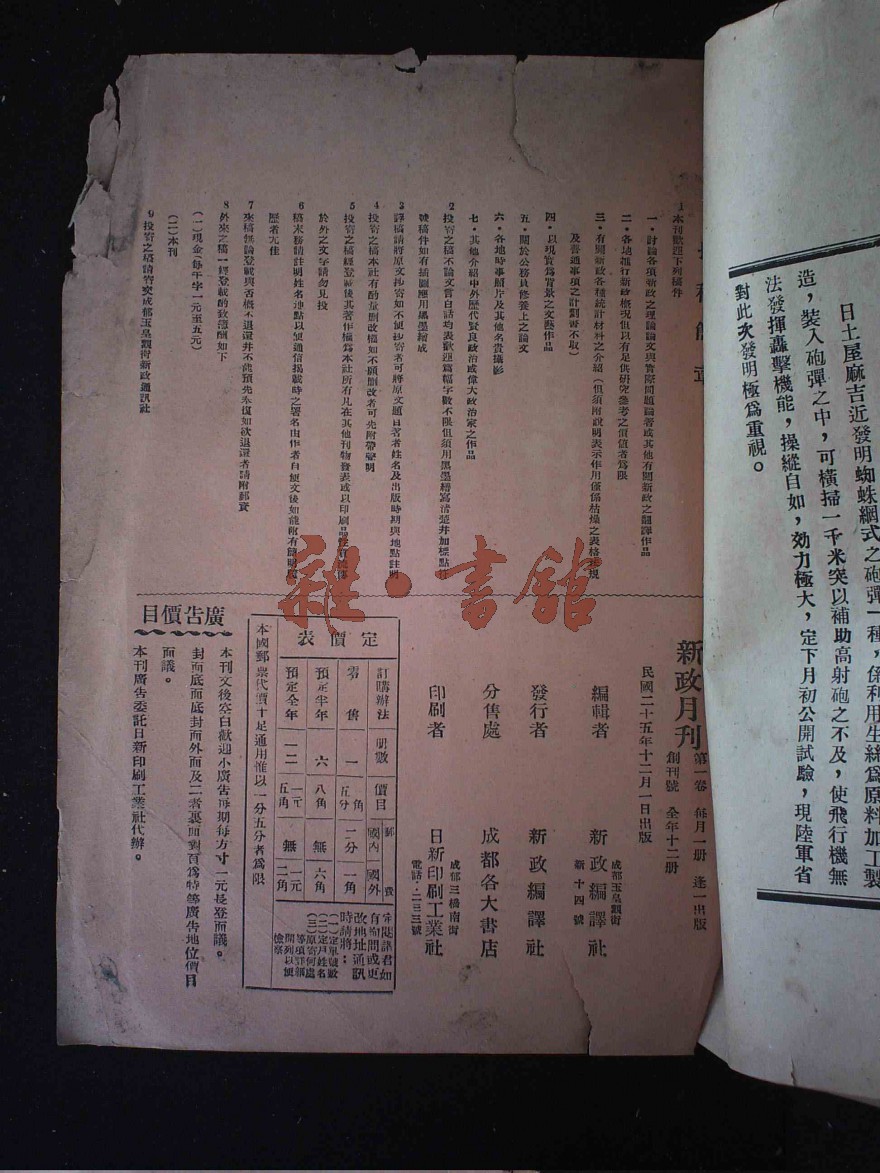 日土屋麻吉近發明蜘蛛網式之砲彈一種，係利用生絲爲原料加工製
造，裝入砲彈之中，可橫掃一千米突以補助高射砲之不及，使飛行機無
法發揮轟擊機能，操縱自如，効力極大，定下月初公開試驗，現陸軍省
對此次發明極爲重視。
1 本刊歡迎下列稿件
一．討論各項新政之理論論文與實際問題論著或其他有關新政之翻譯作品
二．各地進行新政概況但以有足供研究參考之價值者爲限
三．有關新政各種統計材料之介紹（但須附說明表示作用僅係枯燥之表格法規
及普通事項之計劃書不取）
四．以現實爲背景之文藝作品
五．關於公務員修養上之論文
六．各地時事照片及其他名貴攝影
七．其他介紹中外歷代賢良政治或偉大政治家之作品
2 投寄之稿不論文言白話均表歡迎篇幅字數不限但須用黑墨繕寫清楚并加標點
號稿件如有插圖應用黑墨繪成
3 譯稿請將原文抄寄如不便抄寄者可將原文題目著者姓名及出版時期與地點註明
4 投寄之稿本社有酌量刪改權如不願刪改者可先附帶聲明
5 投寄之稿經登載後其著作權爲本社所有凡在其他刊物發表或以印刷品
於外之文字請勿見投
6 稿末務請註明姓名地點以便通信揭載時之署名由作者自便文後如能附有簡明
歷者尤佳
7 來稿無論登載與否概不退還并不能預先奉復如欲退還者請附郵資
8 外來之稿一經登載酌致薄酬如下
（一）現金（每千字一元至五元）
（二）本刊
9 投寄之稿請寄交成都玉皇觀街新政通訊社
新政月刊
第一卷 每月一册 逢一出版
創刊號 全年十二册
民國二十五年十二月一日出版
編輯者 新政編譯社
成都玉皇觀街
新十四號
發行者 新政編譯社
分售處 成都各大書店
印刷者 日新印刷工業社
成都三橋南街
電話・二三三號
定價表
訂購辦法 册數 價目 郵費 國內 國外
零售 一 一角五分 二分 一角
預定半年 六 八角 無 六角
預定全年 一二 一元五角 無 一元二角
有詢問或更
改地址通訊
時請將：
（一）定單號數
（二）定戶姓名
（三）原寄何處
等項詳細
開列以便
檢察
本國郵票代價十足通用惟以一分五分者爲限
廣告價目
本刊文後空白歡迎小廣告每期每方寸一元長登面議。
封面底面底封面外面及二者裏面對頁爲特等廣告地位價目
面議。
本刊廣告委託日新印刷工業社代辦。
雜・書館